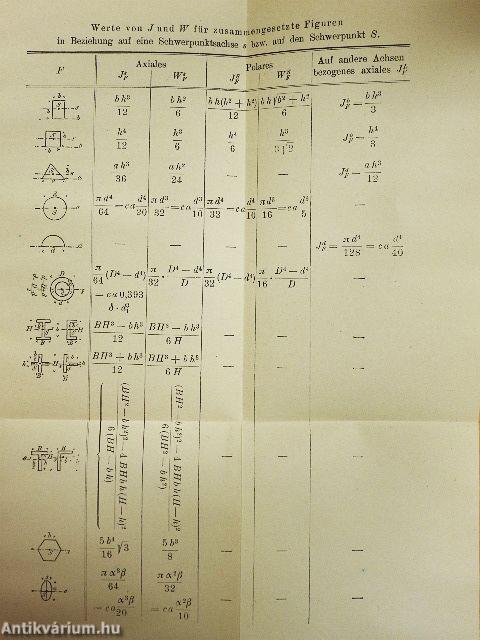 Werte von J und W für zusammengesetzte Figuren
in Beziehung auf eine Schwerpunktsachse s bzw. auf den Schwerpunkt S.
F | Axiales | Polares | Auf andere Achsen bezogenes axiales
b h³/12 | b h²/6 | b h(b² + h²)/12 | b h √b² + h²/6 | b h³/3
h⁴/12 | h³/6 | h⁴/6 | h³/3√2 | h⁴/3
a h³/36 | a h²/24 | — | — | a h³/12
π d⁴/64 = ca d⁴/20 | π d³/32 = ca d³/10 | π d⁴/32 = ca d⁴/10 | π d³/16 = ca d³/5 | —
— | — | — | — | π d⁴/128 = ca d⁴/40
π/64 (D⁴ — d⁴) | π/32 · D⁴ — d⁴/D | π/32 (D⁴ — d⁴) | π/16 · D⁴ — d⁴/D | —
= ca 0,393
BH³ — bh³/12 | BH³ — bh³/6 H | — | — | —
BH³ + bh³/12 | BH³ + bh³/6 H | — | — | —
(BH² — bh²)² — 4 BHbh(H — h)²/6(BH — bh) | (BH² — bh²)² — 4 BHbh(H — h)²/6(BH² — bh²) | — | — | —
5 b⁴/16 √3 | 5 b³/8 | — | — | —
π α³β/64 | π α²β/32 | — | — | —
= ca α³β/20 | = ca α²β/10
Antikvárium.hu